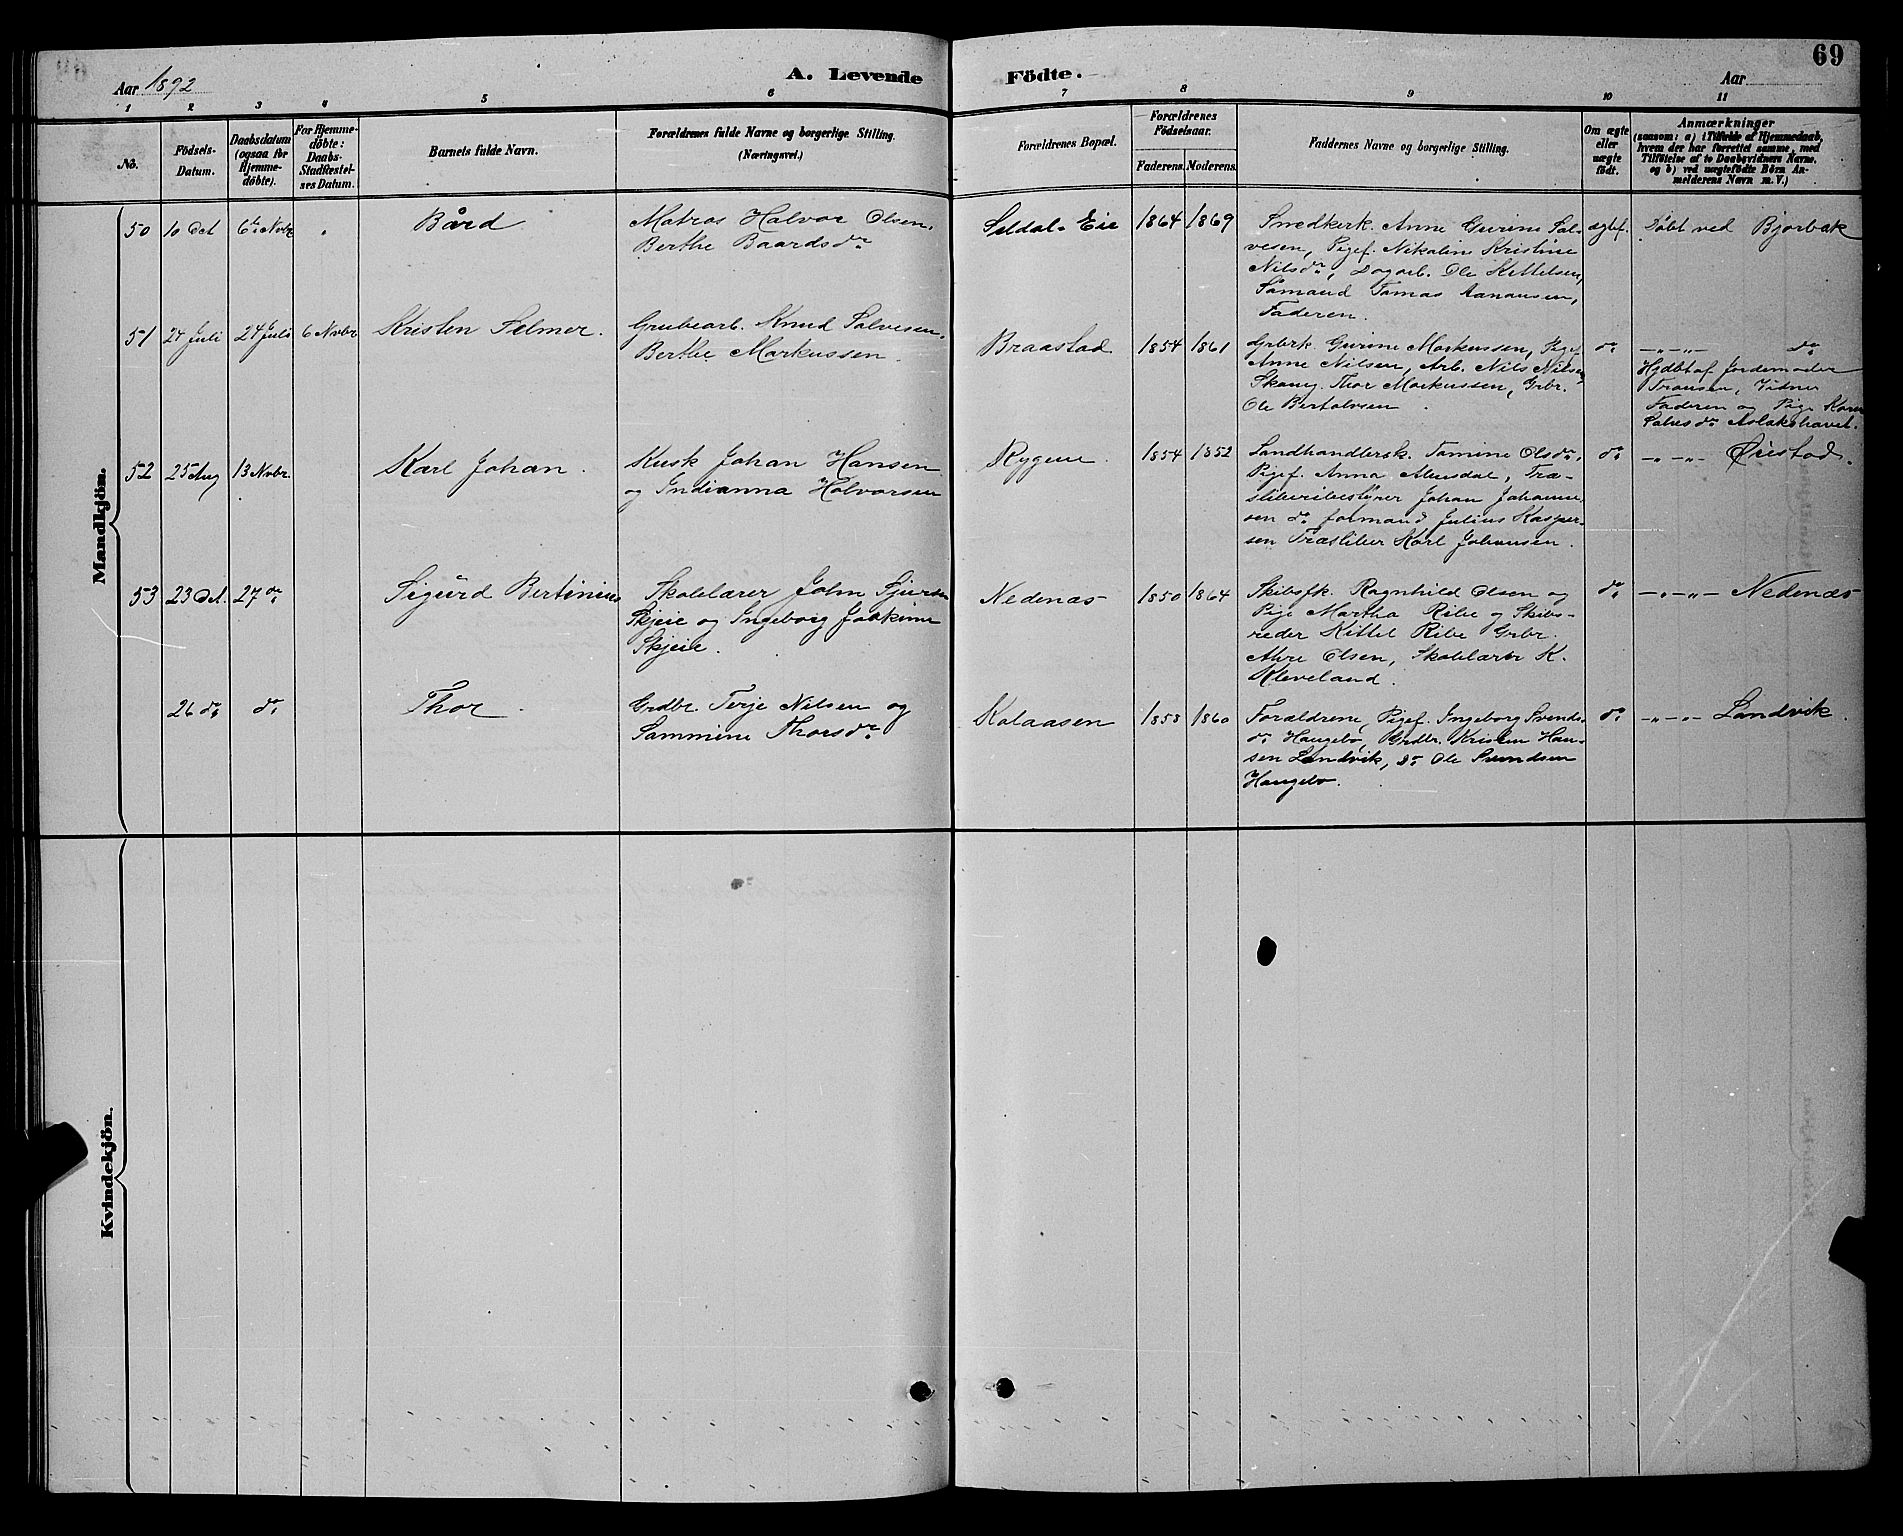 69
Aar 1892
A. Levende Födte.
Aar
1 2 3 4 5 6 7 8 9 10 11
No.
Födsels-
Datum.
Daabsdatum
(ogsaa for
Hjemme-
döbte).
For Hjemme-
döbte:
Daabs-
Stadfæstel-
ses Datum.
Barnets fulde Navn.
Forældrenes fulde Navne og borgerlige Stilling.
(Næringsvei.)
Forældrenes Bopæl.
Forældrenes
Födselsaar.
Faderens. Moderens.
Faddernes Navne og borgerlige Stilling.
Om ægte
eller
uægte
født.
Anmærkninger
(saasom: a) i Tilfælde af Hjemmedaab,
hvem der har forrettet samme, med
Tilföielse af to Daabsvidners Navne,
og b) ved uægtefödte Börn An-
melderens Navn m. V.)
Mandkjön.
50
10 Oct
6te Novbr
Bård
Matros Halvor Olsen,
Berthe Baardsdr
Seldal-Eie
1864
1869
Smedkerk. Anne Gurine Sal-
vesen, Pigef. Nikoline Kristine
Nilsdr, Dagarb. Ole Kittelsen,
Sömand Tomas Aanansen,
Faderen.
ægtef.
Döbt ved Bjorbæk
51
24 Juli
24 Juli
6 Nvbr
Kristen Selmer.
Grubearb. Knud Salvesen,
Berthe Markussen.
Braastad
1854
1861
Grbrk. Gurine Markussen, Pigef.
Anne Nilsen, Arb. Nils Nilsen
Thor Markussen, Grbr.
Ole Bertolvsen.
do
-"-"- do
Hjdbt af Jordemoder
Fransen, Vidner
Faderen og Pige Karen
Aslakshavet.
52
25 Aug
13 Nvbr.
Karl Johan.
Kusk Johan Hansen
og Indianna Halvorsen
Rygene
1854
1852
Landhandlersk. Tomine Olsdr,
Pigef. Anna Almedal, Træ-
sliberibestyrer Johan Johanne-
sen do formand Julius Kasper-
sen Træsliber Karl Johansen.
do
-"-"- Öiestad.
53
23 Oct.
27 do
Sigurd Bertinius
Skolelærer John Sjursen
Skjeie og Ingeborg Joakime
Skjeie.
Nedenæs
1850
1864
Skibsfk. Ragnhild Olsen og
Pige Martha Ribe og Skibs-
reder Kittel Ribe Grbr.
Olsen, Skolelærer K.
Kleveland.
do
-"-"- Nedenæs
26 do
do
Thor.
Grdbr. Terje Nilsen og
Sammine Thorsdr
Kalaasen
1858
1860
Forældrene, Pigef. Ingeborg Svends-
dr Haugebo, Grdbr. Kristen Han-
sen Landvik, Do Ole Svendsen
Haugebo.
do
-"-"- Landvik.
Kvindekjön.